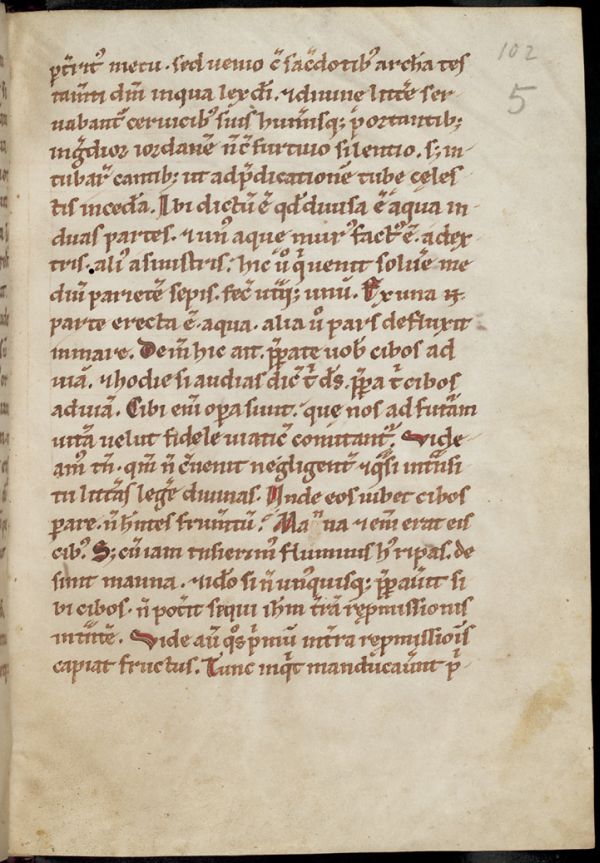 102
5
p̄t̄rit᷒ metu · sed uenio c̄ sac̄dotib᷒ archa tes
tam̄ti dn̄i in qua lex dī · ⁊ diuine litt̄e ser
uabant᷑ ceruicib᷒ suis hum̄isq; portantib;
ingredior iordanē n̄ c̄ furtiuo silentio · s; in
tubar̄ cantib; ut ad p̄dicationē tube celes
tis incedā. Ibi dictū ē qd̄ diuisa ē aqua in
duas partes · ⁊ un᷒ aque mur᷒ fact᷒ ē · a dex
tris · ali᷒ a sinistris · hic ů q̇ uenit soluēe me
diū parietē sepis · fec̄ utq; unū. Ex una ⁊
parte erecta ē aqua · alia ů pars defluxit
in mare. Dein̄ hic ait · p̄parate uob̄ cibos ad
uiā · ⁊ hodie si audias dic̄ t̄ ds̄ · p̄pat̄ cibos
ad uiā. Cibi em̄ opa sunt · que nos ad futūam
uitā uelut fidele uiatic̄ comitant᷑. Vide
am᷒ tn̄ · qm̄ n̄ c̄uenit negligent᷑ ⁊ q̇si int̄nsi
tu litt̄as legē diuinas. Unde eos iubet cibos
parare · n̄ hn̄tes frum̄tū? Manna ⁊ em̄ erat eis
cib᷒. S; cū iam t̄nsierim᷒ fluminis h᷒ ripas · de
sinit manna · ⁊ ido si n̄ unusquisq; p̄pau̅it si
bi cibos · n̄ pot̄it sequi ih̄m t̄rā rep̄missionis
intn̄te. Vide au̅ q̊s p̄mū int̄ra rep̄missiōis
capiat fructus. Tunc inq̇t manducau̅nt p̄